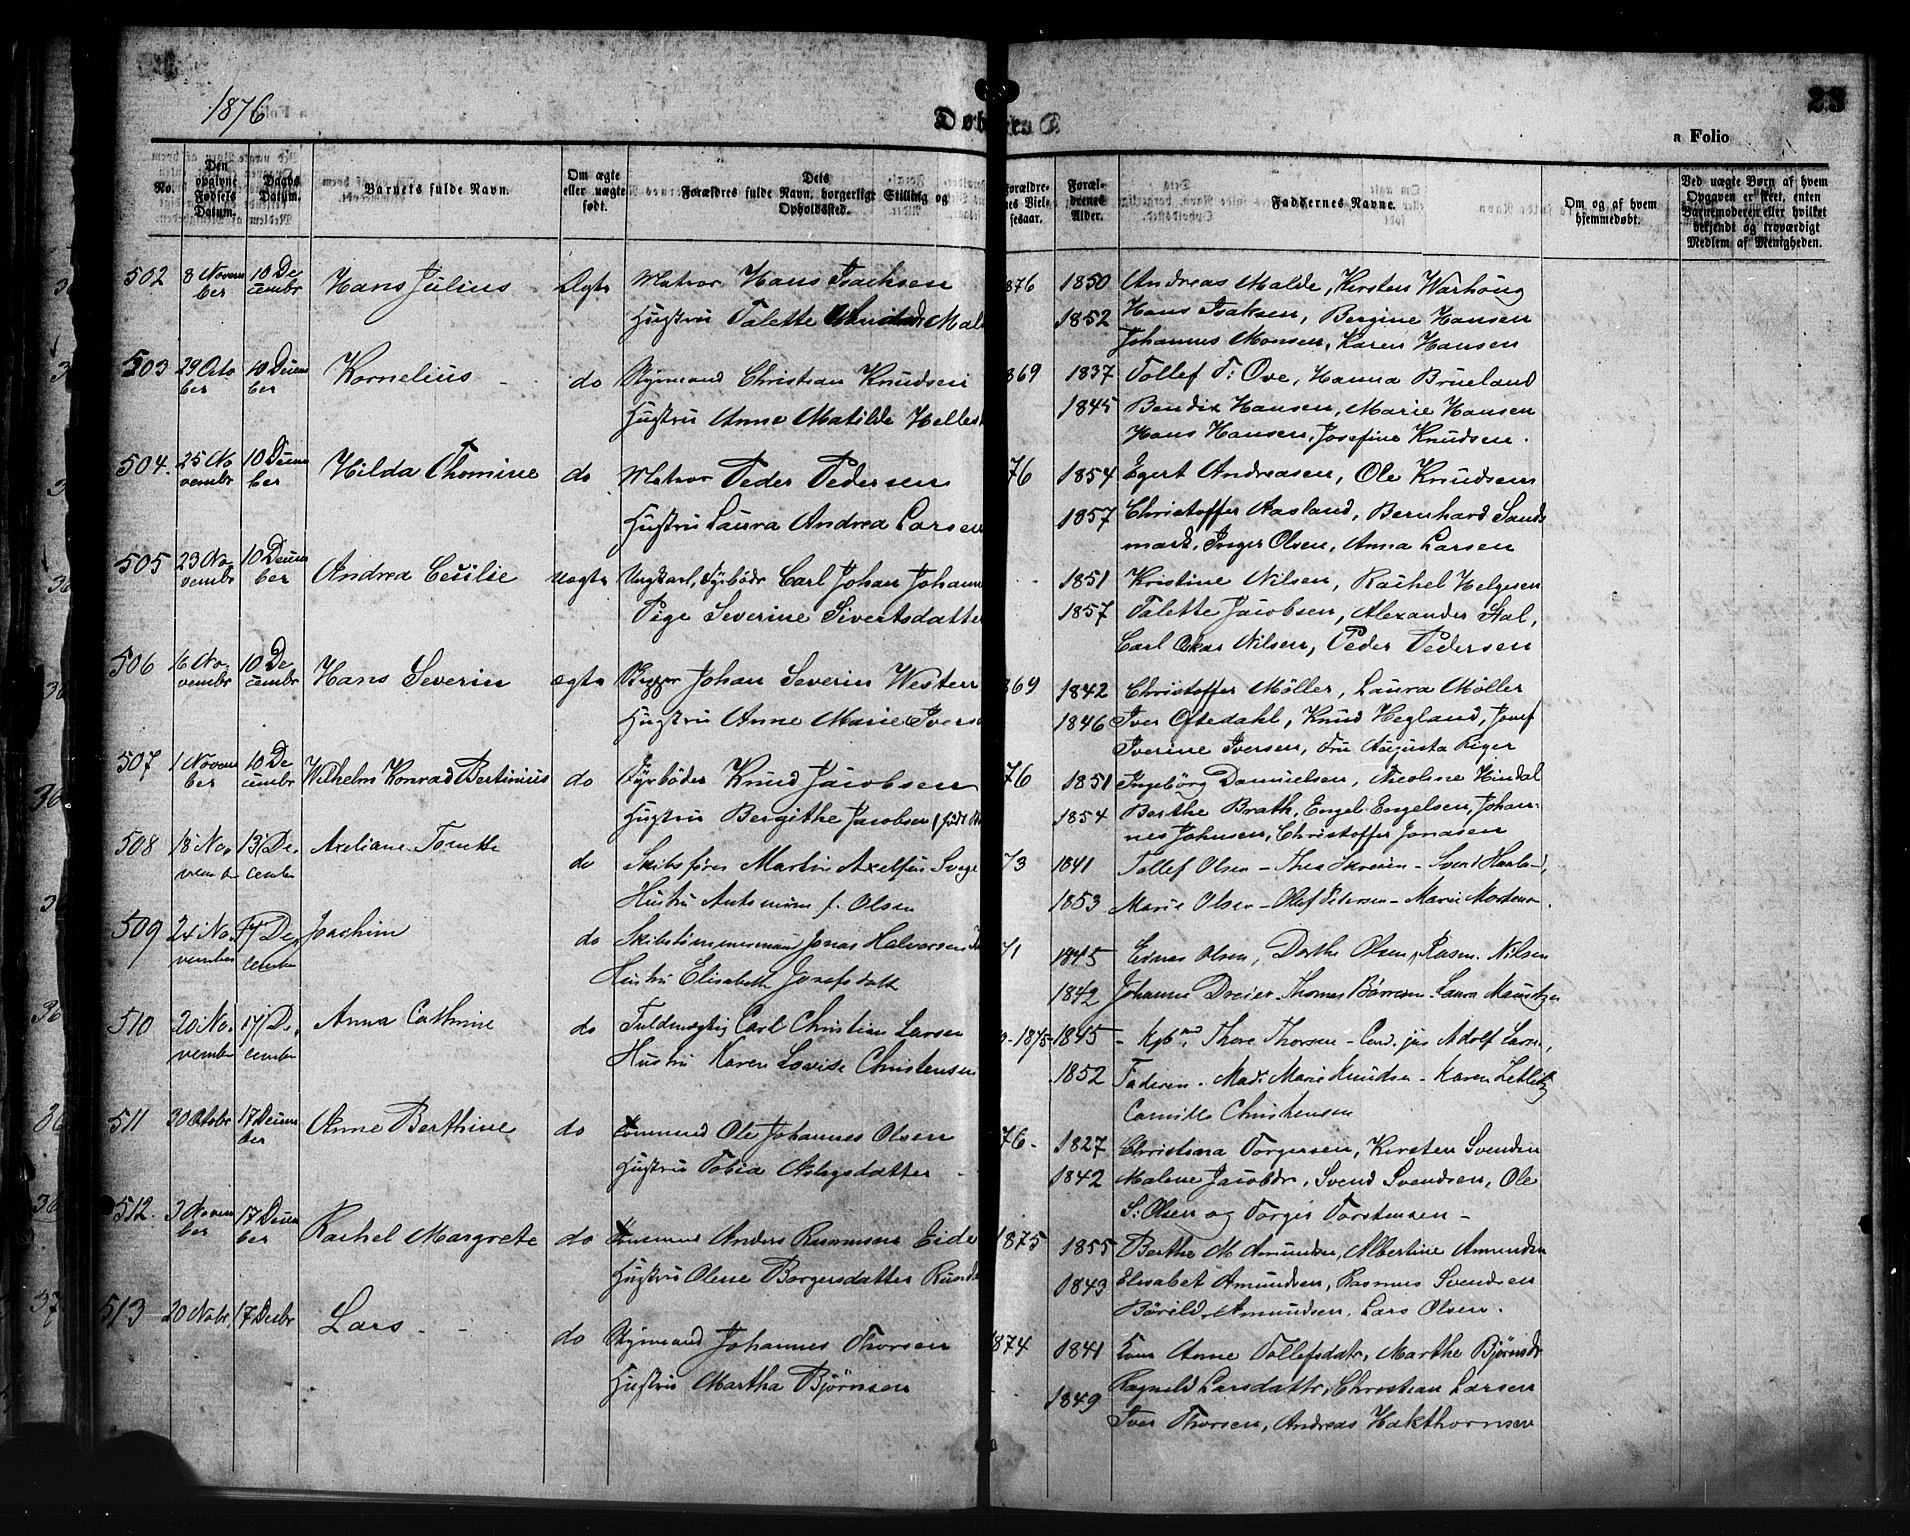 1876
Døbte
23
a Folio
No.
Den opgivne Fødsels Datum.
Daabs Datum.
Barnets fulde Navn.
Om ægte eller uægte født.
Dets Forældres fulde Navn, borgerlige Stilling og Opholdssted.
Forældrenes Vielsesaar.
Forældrenes Alder.
Faddernes Navne.
Om og af hvem hjemmedøbt.
Ved uægte Børn af hvem Opgaven er skeet, enten Barnemoderen eller hvilket bekjendt og troværdigt Medlem af Menigheden.
502 8 November 10 December Hans Julius Ægte Matros Hans Isachsen 876 1850 Andreas Malde, Kirsten Warhoug
Hustru Talette Mal 1852 Hans Isaksen, Bergine Hansen
Johannes Monsen, Karen Hansen
503 29 October 10 December Kornelius do Styrmand Christian Knudsen 869 1837 Tollef T: Ove, Hanna Brueland
Hustru Anne Matilde Helles 1845 Bendix Hansen, Marie Hansen
Hans Hansen, Josefine Knudsen.
504. 25 November 10 December Hilda Thomine do Matros Peder Pedersen 76 1854 Egert Andreasen, Ole Knudsen
Hustru Laura Andrea Larsen 1857 Christoffer Aasland, Bernhard Sands
mark, Inger Olsen, Anna Larsen
505 23 November 10 December Andrea Cecilie Uægte Ungkarl, Fyrbøder Carl Johan Johann 1851 Kristine Nilsen, Rachel Helgesen
Pige Severine Sivertsdatter 1857 Talette Jacobsen, Alexander Stal,
Carl Oskar Nilsen, Peder Pedersen
506 16 November 10 December Hans Severin ægte Johan Severin Western 869 1842 Christoffer Møller, Laura Møller
Hustru Anne Marie Ivers 1846 Iver Oftedahl, Knud Hegland, Josef
Iverine Iversen, Fru Augusta Riger
507 1 November 10 December Wilhelm Konrad Bertinius do Fyrbøder Knud Jacobsen 76 1851 Ingeborg Danielsen, Nicoline Hindal
Hustru Bergithe Jacobsen født 1854 Berthe Brath, Engel Engelsen, Johan-
nes Johnsen, Christoffer Jonasen
508 18 November 13 December Axeliane do Skibsfører Martin Axelsen 73 1841 Tollef Olsen - Thea
Hustru f. Olsen 1853 Marie Olsen - Olaf Pedersen - Marie
509 24 November 17 December Joachim do Skibstimmermand Jonas Halvorsen 71 1845 Olsen, Dorthe Olsen, Rasm. Nilsen
Hustru Elisabeth Josefsdatt 1842 Johanne Dreier - Thomas - Laura
510 20 November 17 December Anna Cathrine do Fuldmægtig Carl Christian Larsen 1875 1845 Thore Thorsen - Cand. jur Adolf
Hustru Karen Lovise Christensen 1852 Faderen - Mad. Marie Knudsen - Karen
Camilla Christensen
511 30 Octobr 17 December Anne Berthine do Ole Johannes Olsen 76 1827 Christina Torgersen, Kirsten Svendsen
Hustru Tobia Aslagsdatter 1842 Malene Jacobdr, Svend Svendsen, Ole
S: Olsen og Torger Torstensen
512. 3 November 17 December Rachel Margrete do Anders Rasmussen Eide 1875 1855 Berthe M Amundsen, Albertine Amundsen
Hustru Olene Borgersdatter 1843 Elisabet Amundsen, Rasmus Svendsen
Børild Amundsen, Lars Olsen.
513 20 Nobr. 17 Decbr Lars do Styrmand Johannes Thorsen 874 1841 Anne Tollefsdatr, Marthe Bjørnsdr
Hustru Martha Bjørnsen 1849 Ragnild Larsdattr, Christian Larsen
Iver Thorsen, Andreas Hakthornsen